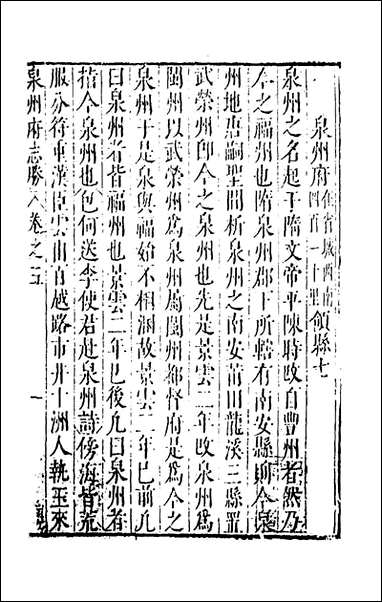 泉州府在省城西南四百一十里領縣七
泉州之名起于隋文帝平陳時改自豐州者然乃
今之福州也隋泉州郡下所轄有南安縣卽今泉
州地唐嗣聖間析泉州之南安莆田龍溪三縣置
武榮州卽今之泉州也先是景雲二年改泉州爲
閩州以武榮州爲泉州閩州都督府是爲今之
泉州于是泉與福始不相溷故景雲二年已前凡
曰泉州者皆福州也景雲二年已後凡曰泉州者
指今泉州也包何送李使君赴泉州詩傍海皆荒
服分符重漢臣雲山百越路市井十洲人執玉來
泉州府志勝 卷之五 一